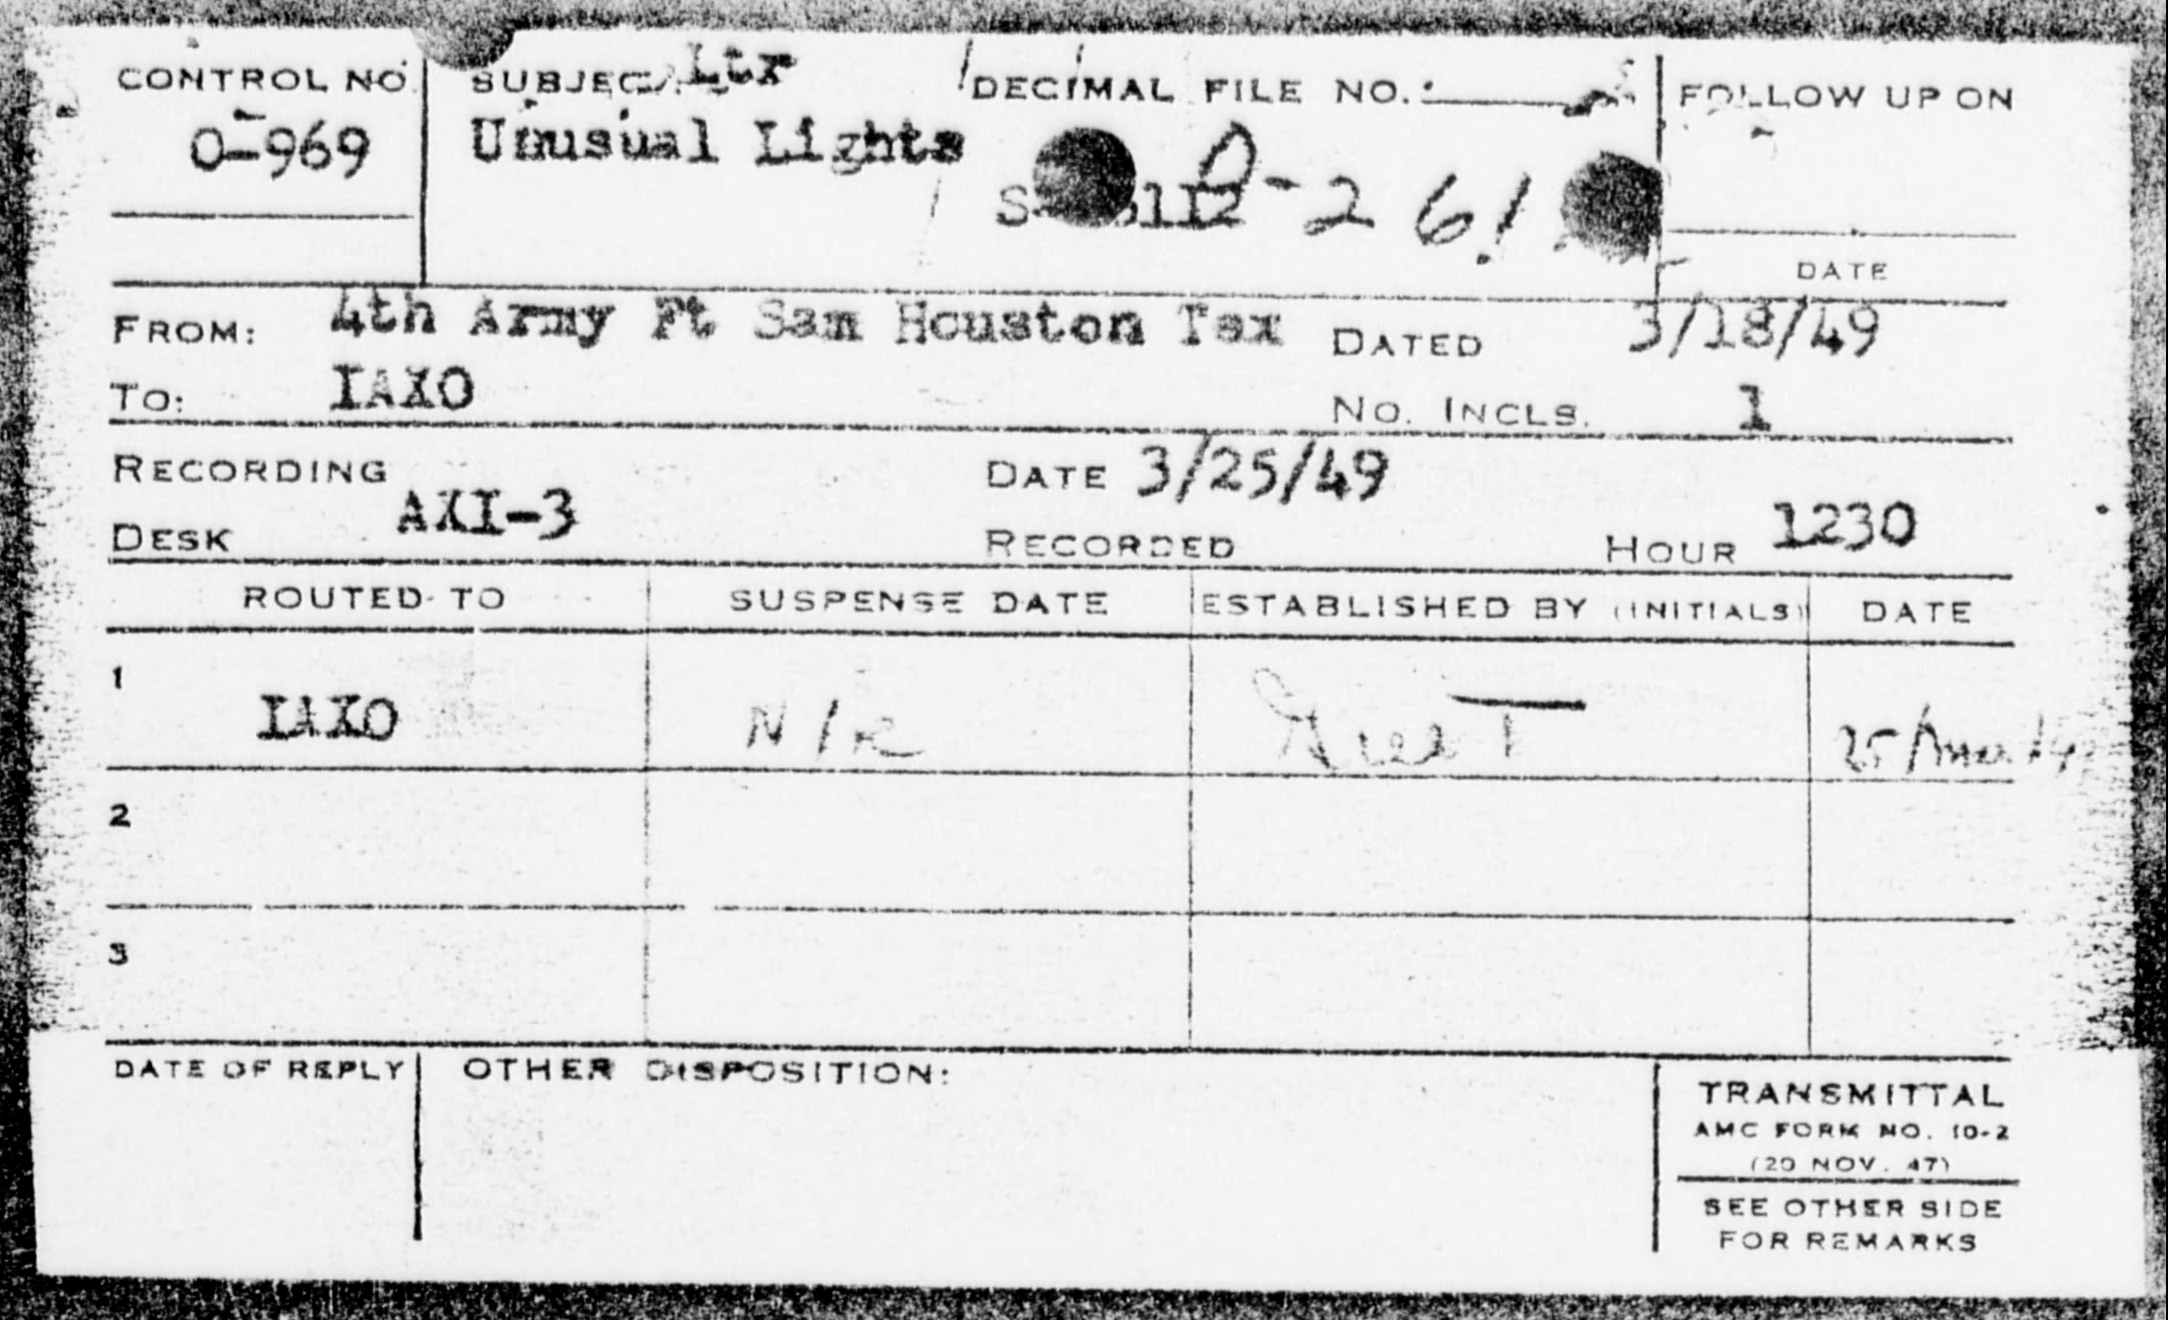 CONTROL NO. SUBJECT: Ltr DECIMAL FILE NO.: FOLLOW UP ON
0-969 Unusual Lights
DATE
FROM: 4th Army Ft Sam Houston Tex DATED 3/18/49
TO: IAXO NO. INCLS. 1
RECORDING DATE 3/25/49
DESK AXI-3 RECORDED HOUR 1230
ROUTED TO SUSPENSE DATE ESTABLISHED BY (INITIALS) DATE
1 IAXO N/R 25/Mar/49
2
3
DATE OF REPLY OTHER DISPOSITION:
TRANSMITTAL
AMC FORM NO. 10-2
(20 NOV. 47)
SEE OTHER SIDE
FOR REMARKS